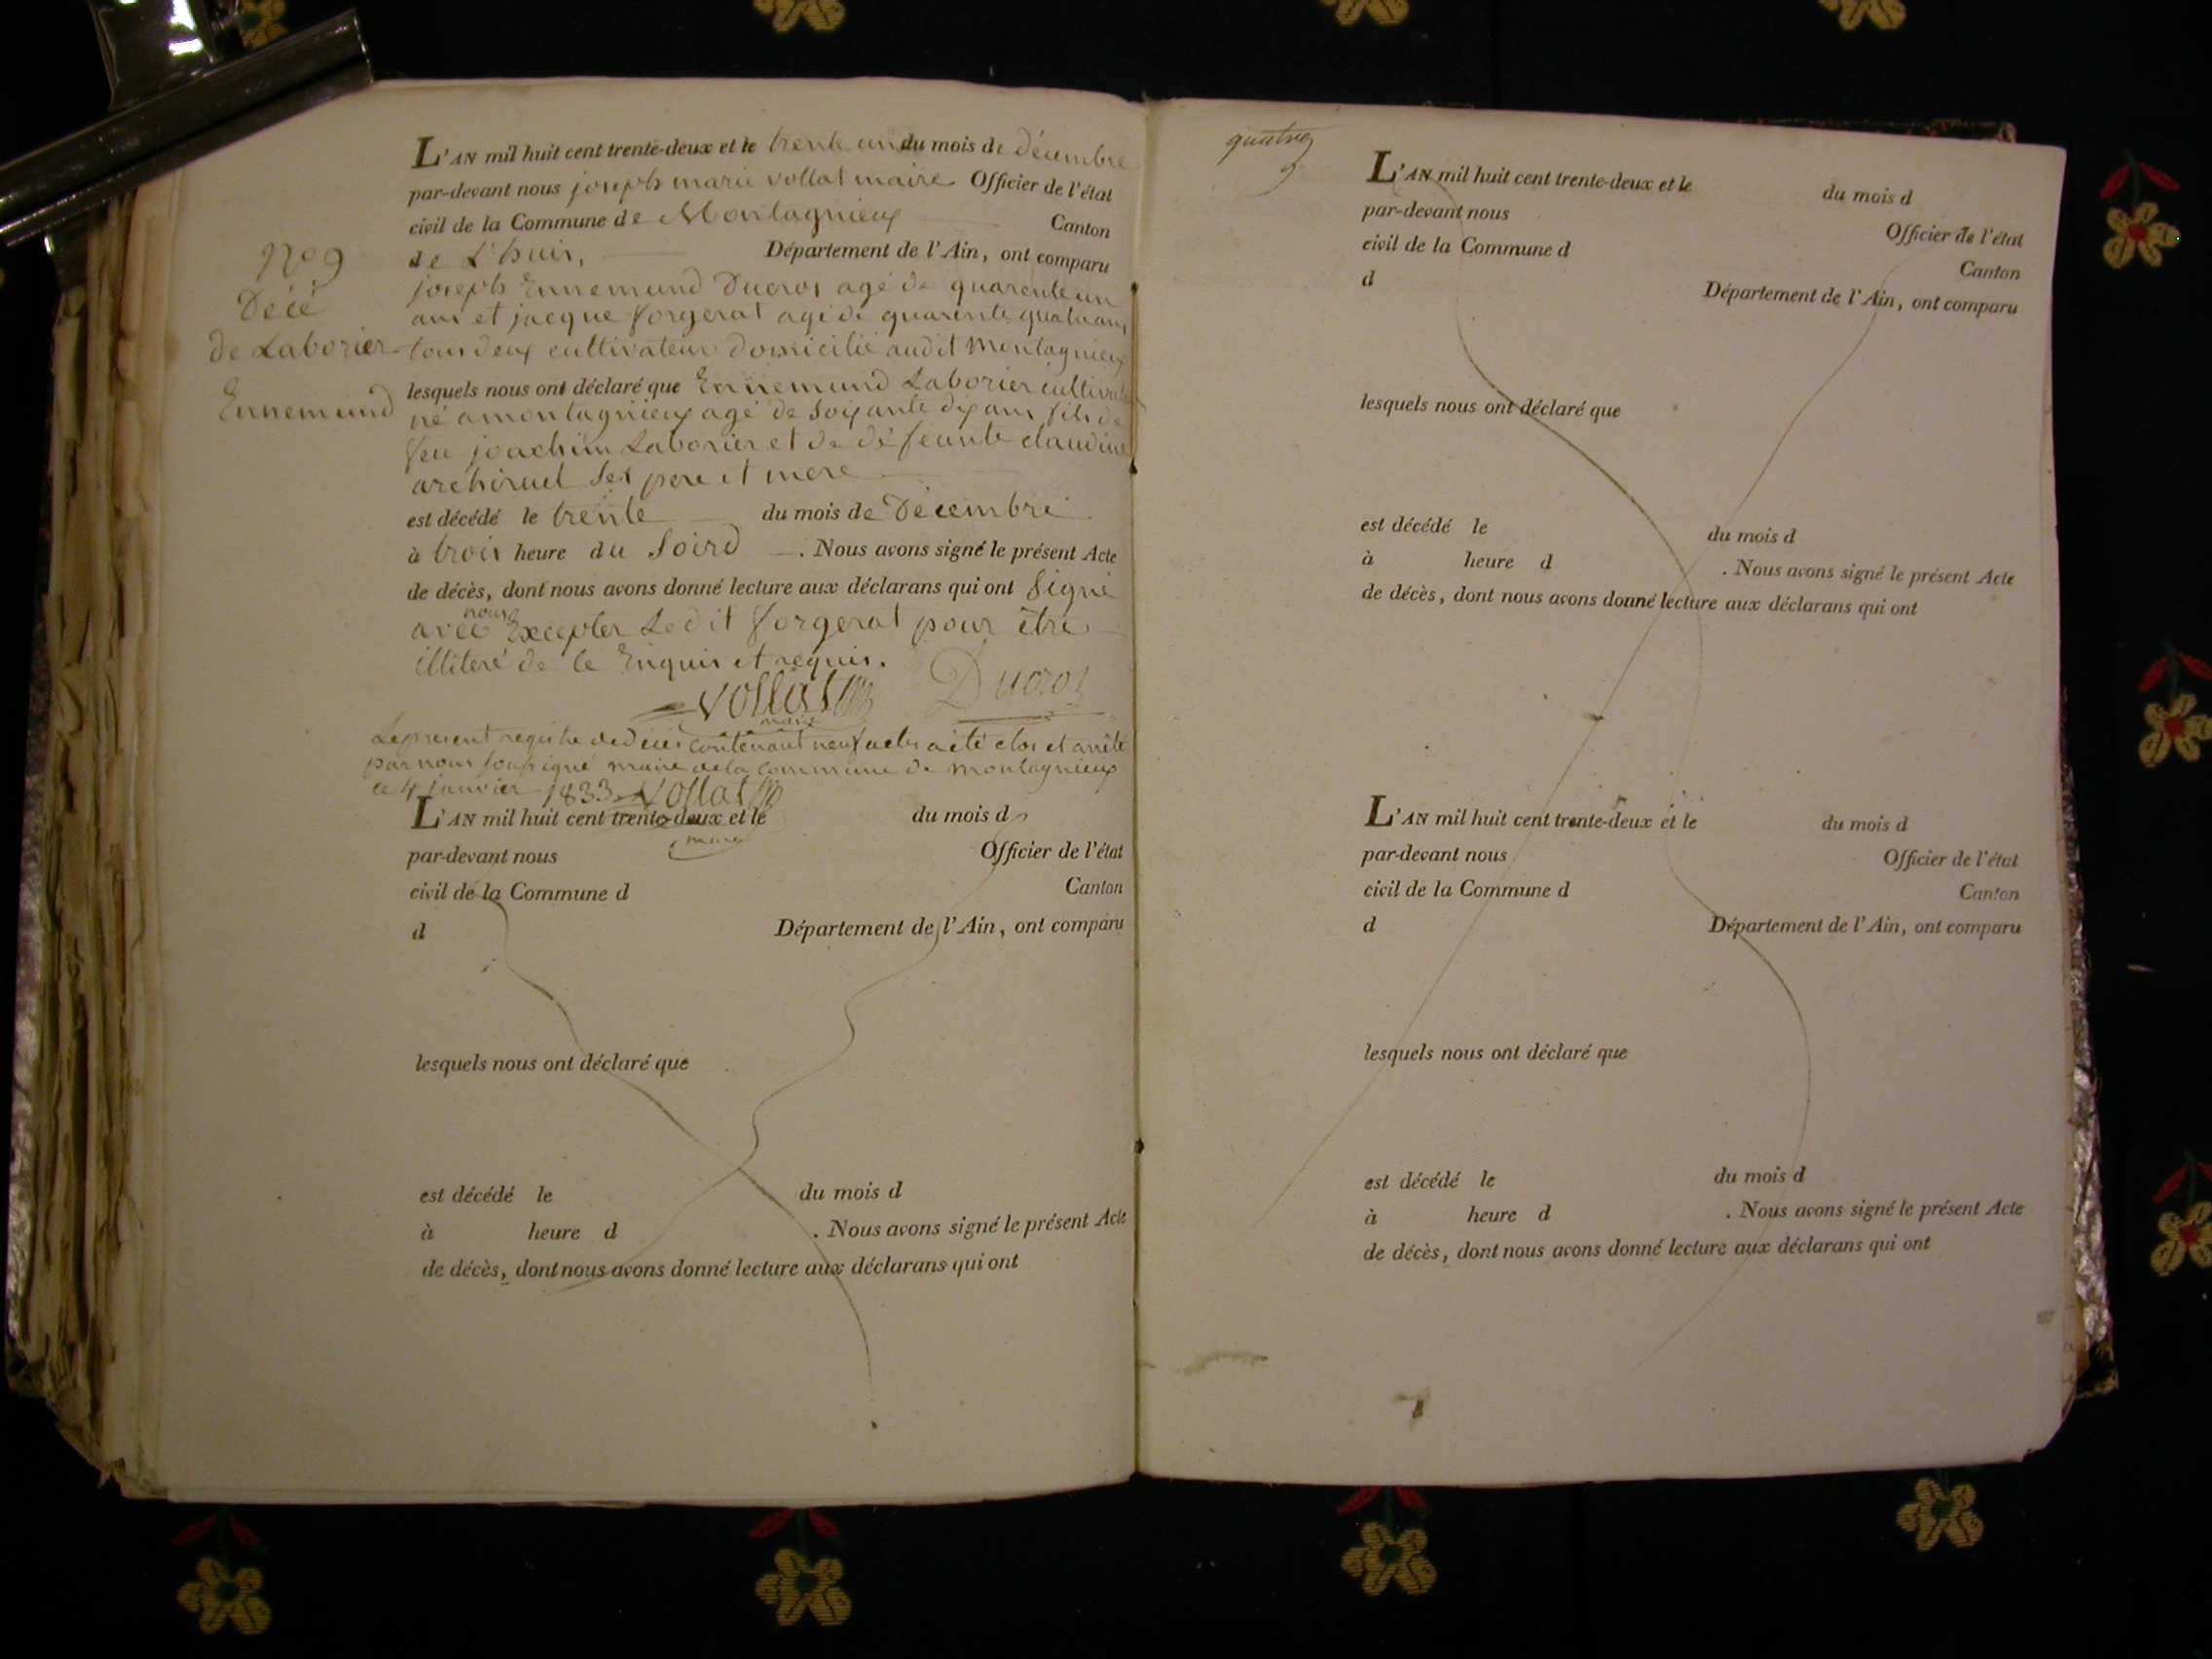 N° 9
Décé
de Laborier
Ennemund
L'AN mil huit cent trente-deux et le trente un du mois de décembre
par-devant nous joseph marie vollat maire Officier de l'état
civil de la Commune de Montagnieux Canton
de L'huis, Département de l'Ain, ont comparu
joseph Ennemund Ducros agé de quarente un
ans et jacque forgerat agé de quarente quatre ans
tous deux cultivateur domicilié audit Montagnieux
lesquels nous ont déclaré que Ennemund Laborier cultivateur
né a montagnieux agé de soixante dix ans fils de
feu joachim Laborier et de défeunte claudine
ses pere et mere
est décédé le trente du mois de Décembre
à trois heure du Soird . Nous avons signé le présent Acte
de décès, dont nous avons donné lecture aux déclarans qui ont Signé
avec nous Excepter Ledit forgerat pour être
illiteré de ce Enquis et requis.
vollat Ducros
maire
Le present registre de décés contenant neuf actes a été clos et arrêté
par nous soussigné maire de la commune de montagnieux
ce 4 janvier 1833. vollat
maire
L'AN mil huit cent trente-deux et le du mois d
par-devant nous Officier de l'état
civil de la Commune d Canton
d Département de l'Ain, ont comparu
lesquels nous ont déclaré que
est décédé le du mois d
à heure d . Nous avons signé le présent Acte
de décès, dont nous avons donné lecture aux déclarans qui ont
quatre
L'AN mil huit cent trente-deux et le du mois d
par-devant nous Officier de l'état
civil de la Commune d Canton
d Département de l'Ain, ont comparu
lesquels nous ont déclaré que
est décédé le du mois d
à heure d . Nous avons signé le présent Acte
de décès, dont nous avons donné lecture aux déclarans qui ont
L'AN mil huit cent trente-deux et le du mois d
par-devant nous Officier de l'état
civil de la Commune d Canton
d Département de l'Ain, ont comparu
lesquels nous ont déclaré que
est décédé le du mois d
à heure d . Nous avons signé le présent Acte
de décès, dont nous avons donné lecture aux déclarans qui ont